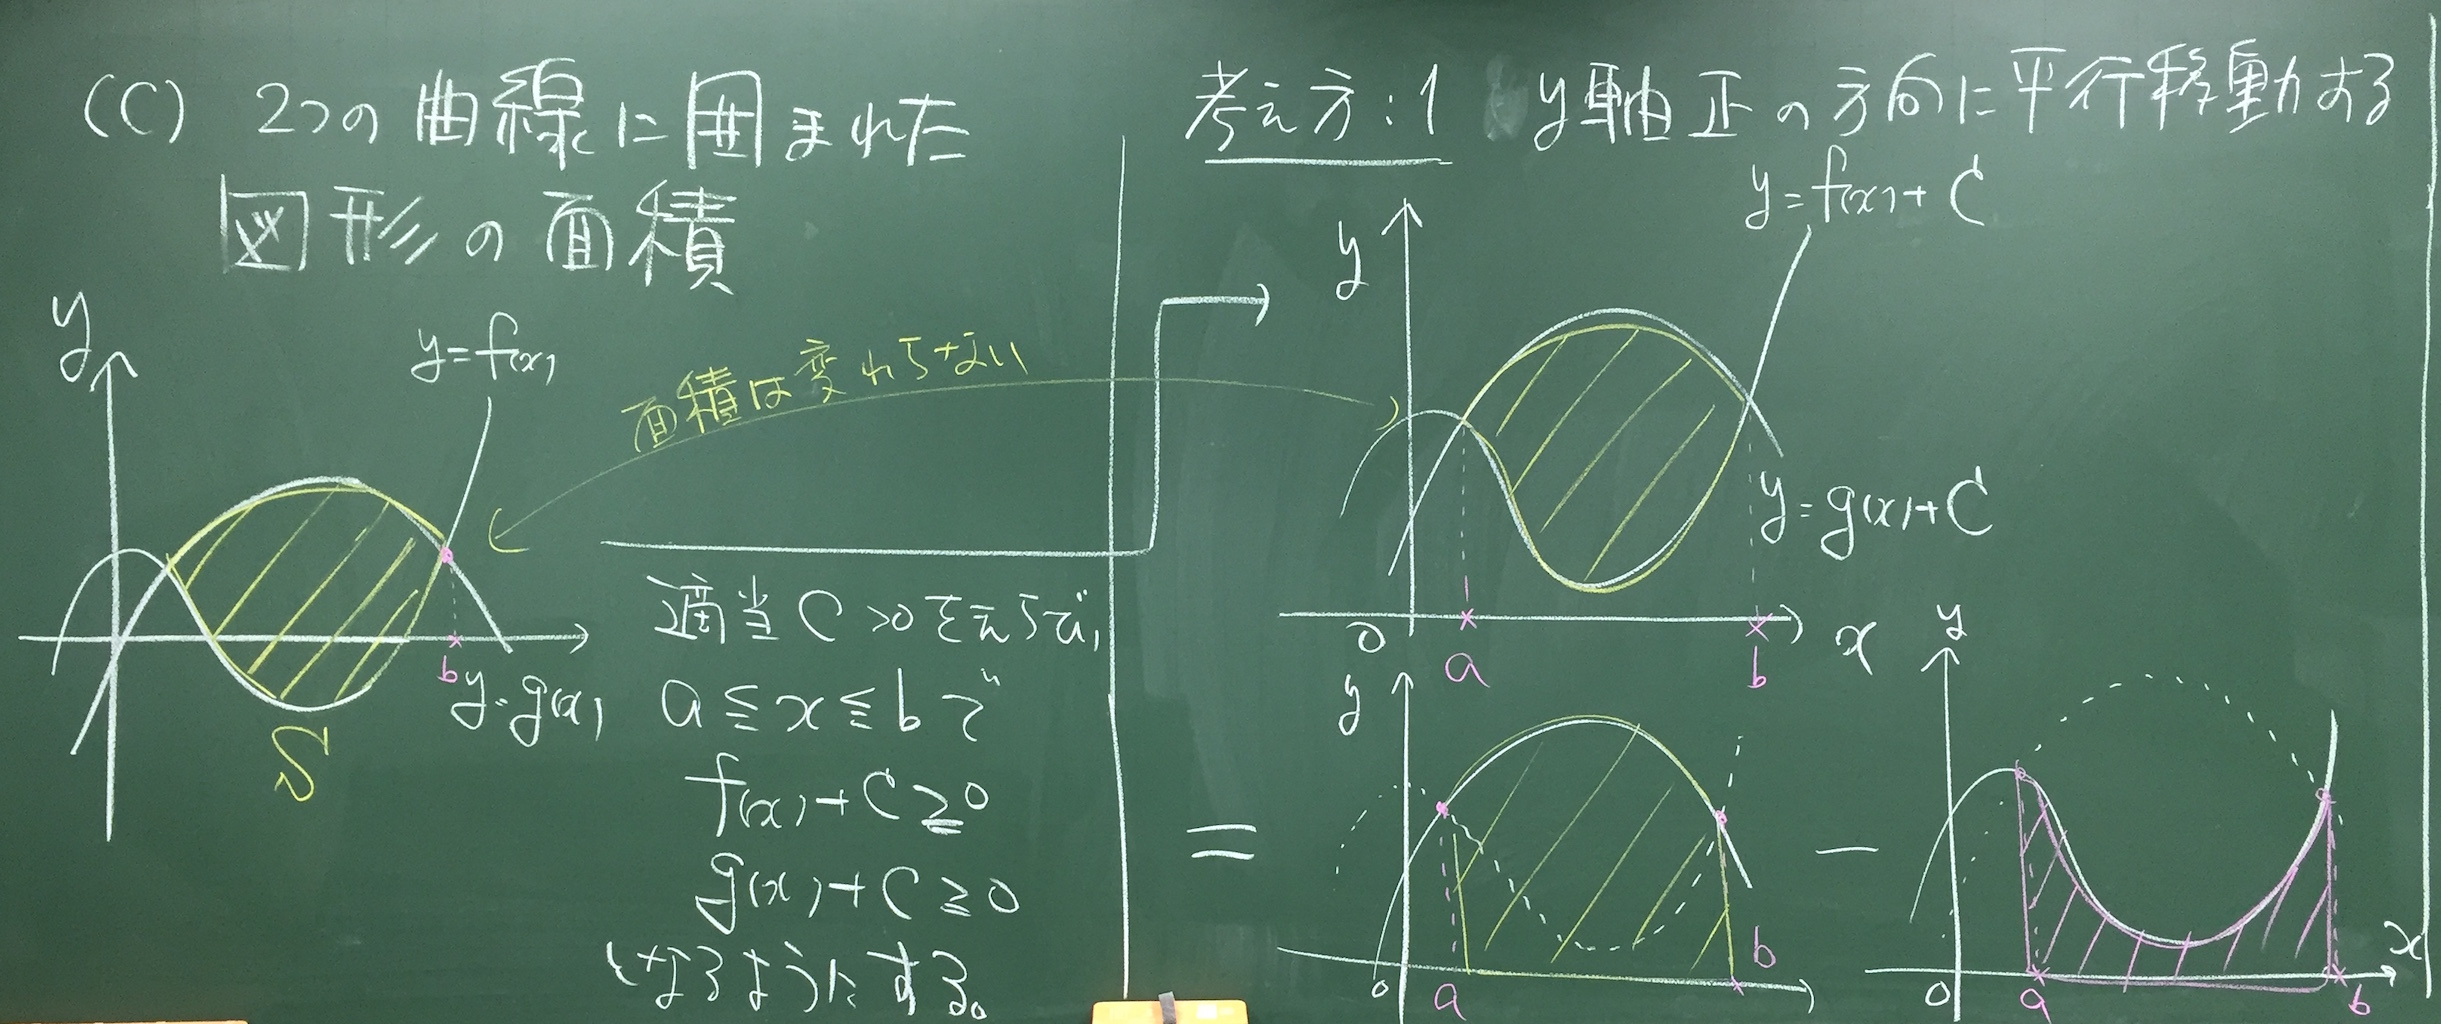 (C) 2つの曲線に囲まれた
図形の面積
y
y=f(x)
面積は変わらない
b
y=g(x)
S
適当C>0をえらび、
a≦x≦bで
f(x)+C≧0
g(x)+C≧0
となるようにする。
考え方:1 y軸正の方向に平行移動する
y=f(x)+C
y
y=g(x)+C
0
a
b
x
=
y
0
a
b
−
y
0
a
b
x